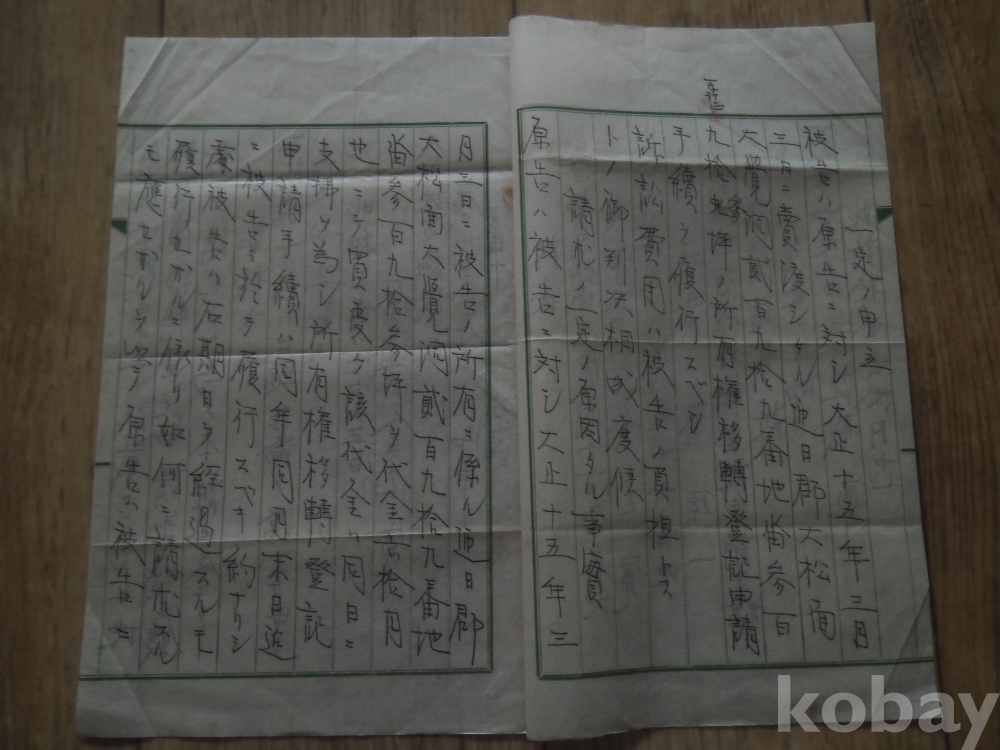 一定ノ申立
被告ハ原告ニ対シ大正十五年三月
三日ニ賣渡シタル迎日郡大松面
大覺洞貳百九拾九番地畓参百
九拾参坪ノ所有権移轉登記申請
手續ヲ履行スベシ
訴訟費用ハ被告ノ負担トス
トノ御判決相成度候
請求ノ一定ノ原因タル事實
原告ハ被告ニ対シ大正十五年三
月三日ニ被告ノ所有ニ係ル迎日郡
大松面大覺洞貳百九拾九番地
畓参百九拾参坪ヲ代金六拾円
也ニテ買受ケ該代金ハ同日ニ
支拂ヲ為シ所有権移轉登記
申請手續ハ同年同月末日迄
ニ被告ニ於テ履行スベキ約ナリシ
處被告ハ右期日ヲ経過スルモ
履行セザルニ依リ如何ニ請求
モ應セザルヲ以テ原告ハ被告ニ
kobay